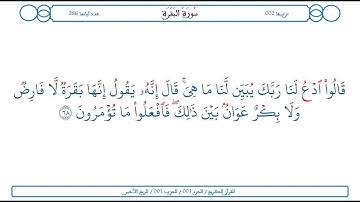 ترتيبها 002 سُورَةُ الْبَقَرَةِ عدد آياتها 286
قَالُوا۟ ٱدْعُ لَنَا رَبَّكَ يُبَيِّن لَّنَا مَا هِىَ ۚ قَالَ إِنَّهُۥ يَقُولُ إِنَّهَا بَقَرَةٌ لَّا فَارِضٌ
وَلَا بِكْرٌ عَوَانٌۢ بَيْنَ ذَٰلِكَ ۖ فَٱفْعَلُوا۟ مَا تُؤْمَرُونَ ٦٨
القرآن الكريم / الجزء 001 / الحزب 001 / الربع الأخير